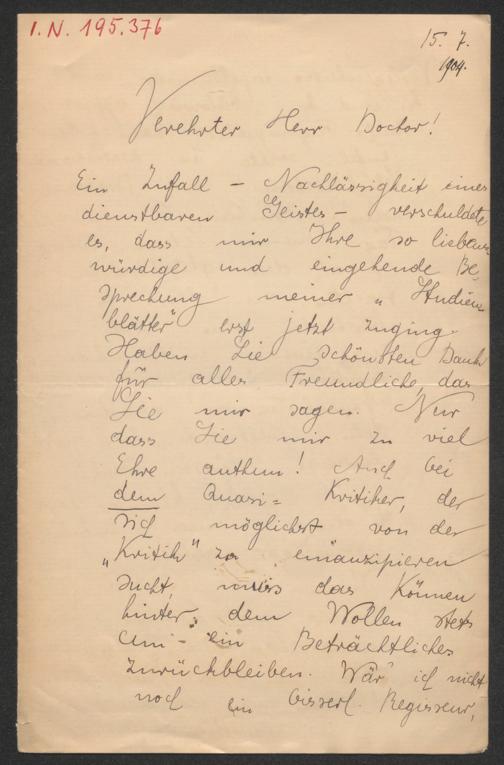 I.N. 195.376
15. 7.
1904.
Verehrter Herr Doctor!
Ein Zufall – Nachlässigkeit eines
dienstbaren Geistes – verschuldete
es, dass mir Ihre so liebens-
würdige und eingehende Be-
sprechung meiner „Studien-
blätter" erst jetzt zuging.
Haben Sie schönsten Dank
für alles Freundliche, das
Sie mir sagen. Nur
dass Sie mir zu viel
Ehre anthun! Auch bei
dem Quasi-Kritiker, der
sich möglichst von der
„Kritik" zu emanzipieren
sucht, muss das Können
hinter dem Wollen stets
um ein Beträchtliches
zurückbleiben. Wär' ich nicht
noch ein bisserl Regisseur,